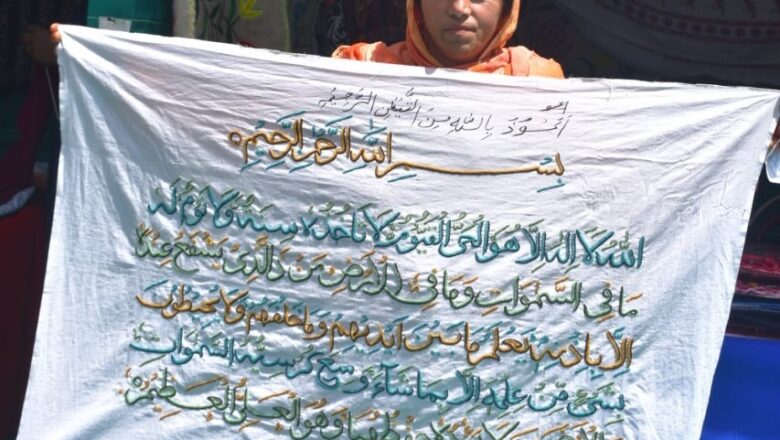 اعوذ بالله من الشیطن الرجیم
بسم الله الرحمن الرحیم
الله لا اله الا هو الحی القیوم لا تاخذه سنة ولا نوم له
ما فی السموات وما فی الارض من ذالذی یشفع عندہ
الا باذنه یعلم ما بین ایدیهم وما خلفهم ولا یحیطون
بشیء من علمه الا بما شآء وسع کرسیه السموات
حفظهما وهو العلی العظیم